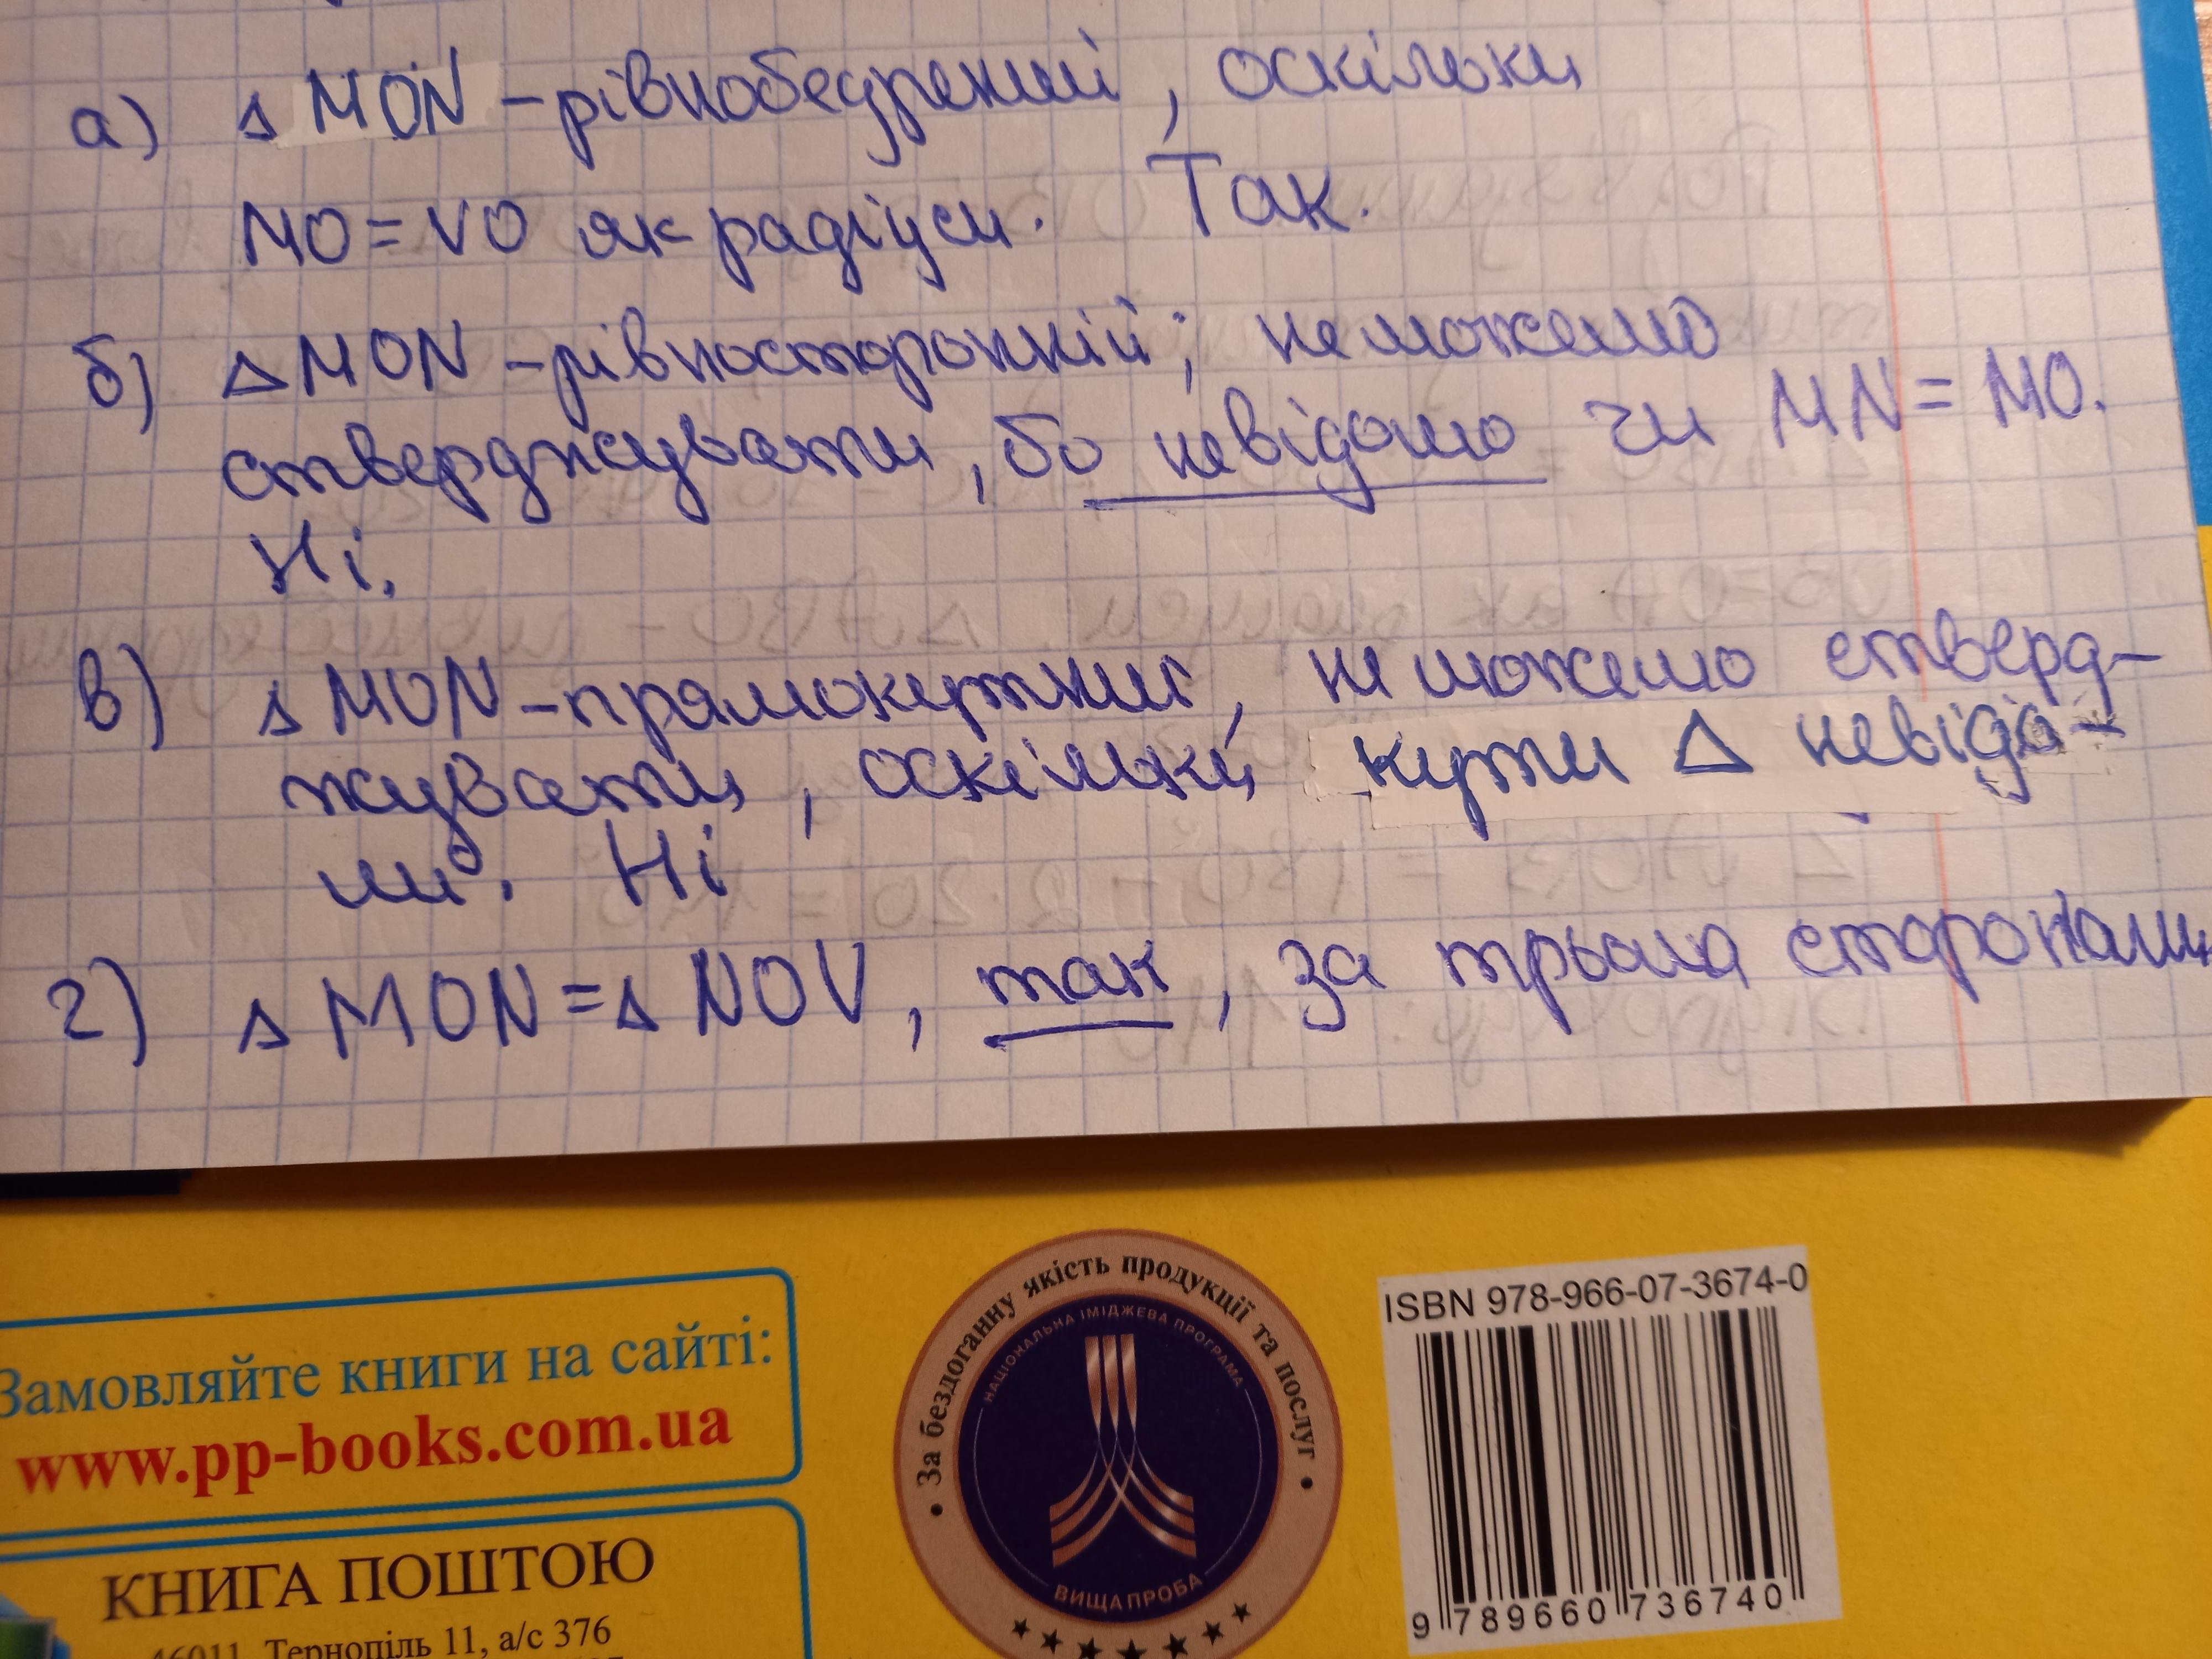 а) Δ MON – рівнобедрений, оскільки
MO = VO як радіуси. Так.
б) Δ MON – рівносторонній; не можемо
стверджувати, бо невідомо чи MN = MO.
Ні.
в) Δ MON – прямокутний, не можемо стверд-
жувати, оскільки кути Δ невідо-
мі. Ні
г) Δ MON = Δ NOV, так, за трьома сторонами
Замовляйте книги на сайті:
www.pp-books.com.ua
КНИГА ПОШТОЮ
46011, Тернопіль 11, а/с 376
• За бездоганну якість продукції та послуг •
НАЦІОНАЛЬНА ІМІДЖЕВА ПРОГРАМА
ВИЩА ПРОБА
ISBN 978-966-07-3674-0
9 789660 736740